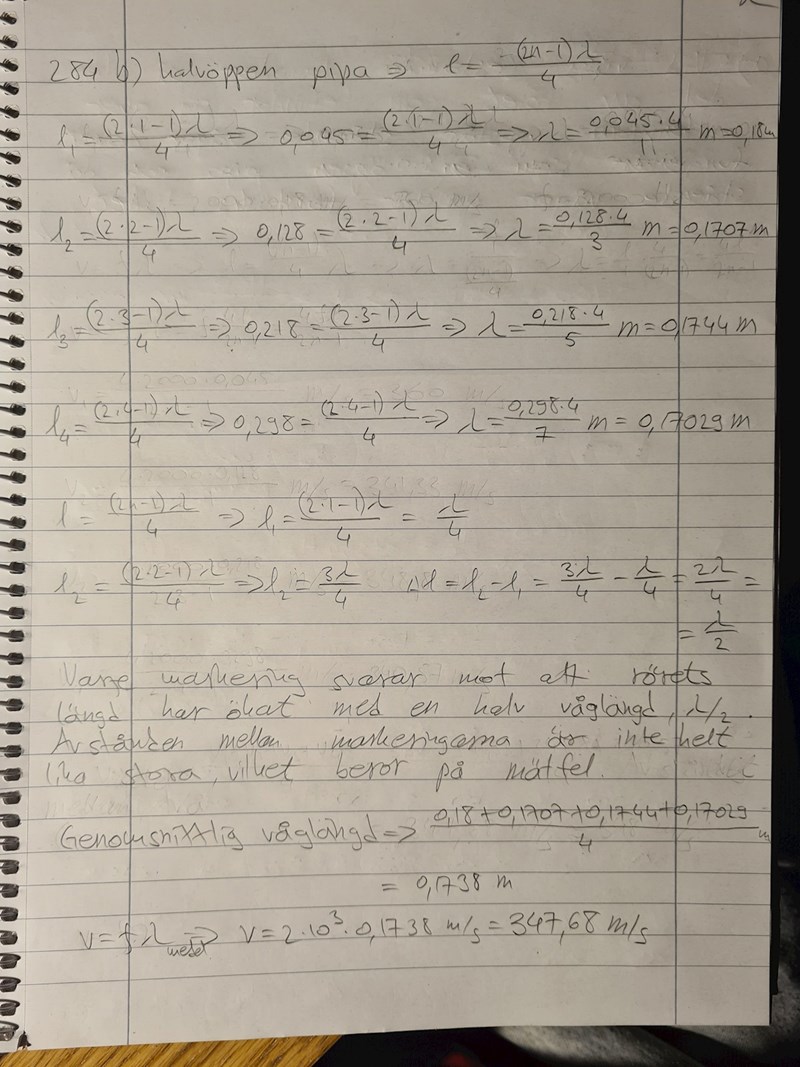 284 b) halvöppen pipa => l = (2n-1)λ/4
l₁ = (2·1-1)λ/4 => 0,045 = (2·1-1)λ/4 => λ = 0,045·4/1 m = 0,18m
l₂ = (2·2-1)λ/4 => 0,128 = (2·2-1)λ/4 => λ = 0,128·4/3 m = 0,1707 m
l₃ = (2·3-1)λ/4 => 0,218 = (2·3-1)λ/4 => λ = 0,218·4/5 m = 0,1744 m
l₄ = (2·4-1)λ/4 => 0,298 = (2·4-1)λ/4 => λ = 0,298·4/7 m = 0,17029 m
l = (2n-1)λ/4 => l₁ = (2·1-1)λ/4 = λ/4
l₂ = (2·2-1)λ/4 => l₂ = 3λ/4 Δl = l₂ - l₁ = 3λ/4 - λ/4 = 2λ/4 =
= λ/2
Varje markering svarar mot att rörets
längd har ökat med en halv våglängd, λ/2.
Avstånden mellan markeringarna är inte helt
lika stora, vilket beror på mätfel.
Genomsnittlig våglängd => 0,18+0,1707+0,1744+0,17029/4 m
= 0,1738 m
v = fλ medel => v = 2·10³·0,1738 m/s = 347,68 m/s